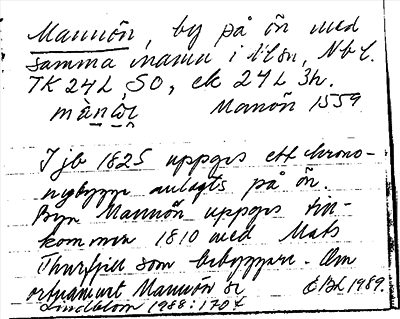 Mannön, by på ön med
samma namn i Ilsn, Nbl.
TK 24L SO, ek 24L 3h.
Manön 1559
I jb 1825 uppges ett krono-
nybygge anlagts på ön.
Byn Mannön uppges till-
kommen 1810 med Mats
Thurfjell som bebyggare. Om
ortnamnet Mannön se
EBL 1989.
Lindblom 1988:170f